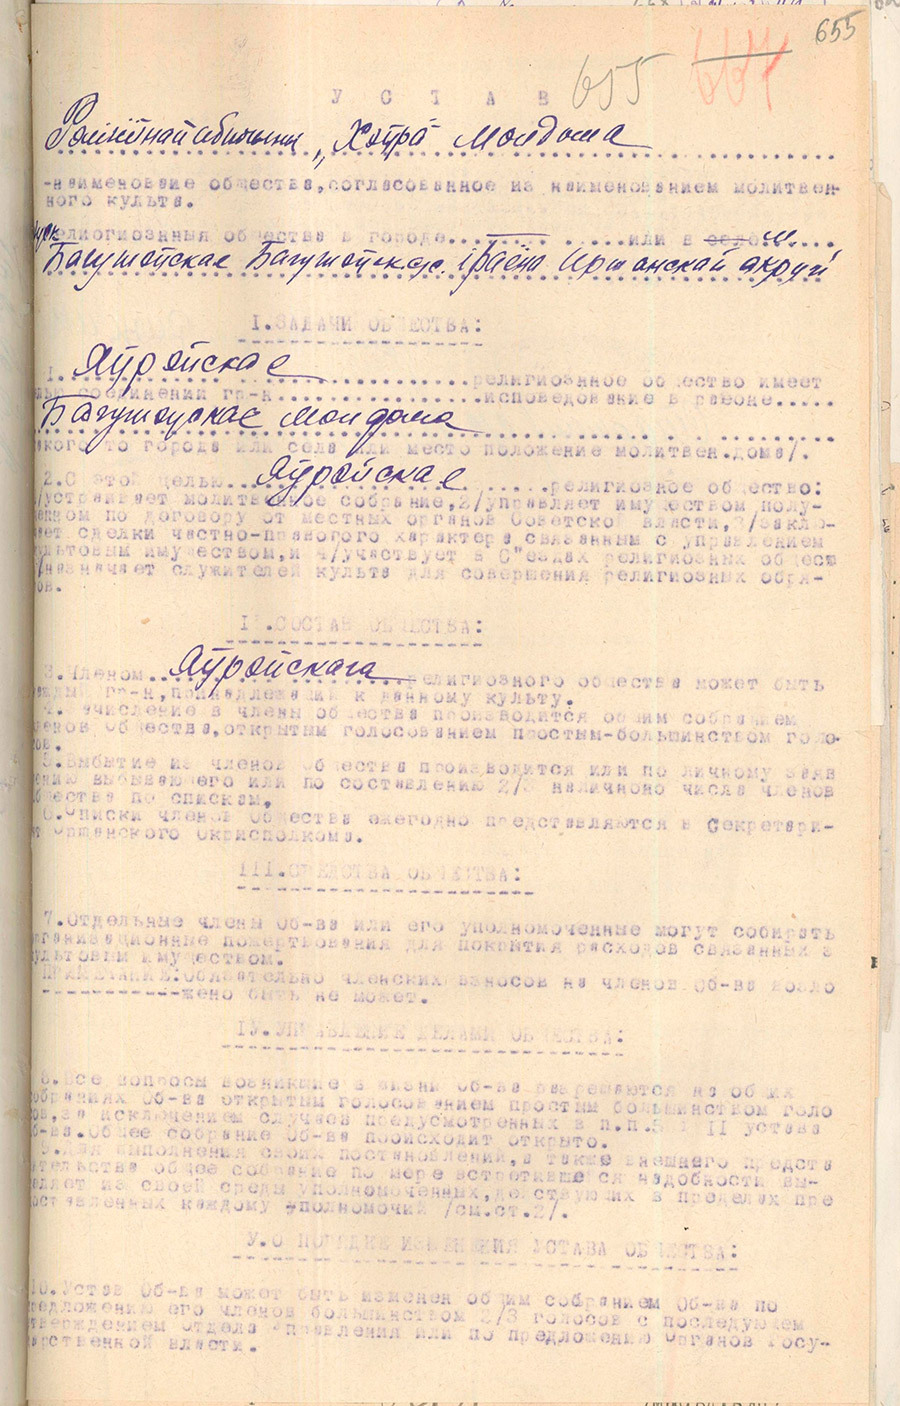 655
655 667
У С Т А В
Рэлігійнай абшчыны „Хэўра" Молдома
-наименование общества,согласованное из наименованием молитвен-
ного культа.
религиознныя общества в городе..............или в селе м.....
Багушэўскае Багушэўскаго раёна Аршанскай акругі
I.ЗАДАЧИ ОБЩЕСТВА:
1. Яўрэйскае религиознное общество имеет
соединении гр-н..................исповедование в районе.....
Багушэускае молдома
какого то города или села или место положение молитвен.дома/.
2.С этой целью Яўрэйскае религиозное общество:
/устраивает молитвенное собрание,2/управляет имуществом полу-
ченном по договору от местных органов Советской власти,3/заклю-
чает сделки частно-правого характера связанным с управлением
культовым имуществом,и 4/участвует в С"ездах религиозных общест
/назначает служителей культа для совершения религиозных обря-
ов.
II.СОСТАВ ОБЩЕСТВА:
3.Членом Яўрэйскага религиозного общества может быть
каждый гр-н,принадлежащий к данному культу.
4. Зачисление в члены общества производится общим собранием
членов общества,открытым голосованием простым-большинством голо-
ов.
5.Выбытие из членов общества производится или по личному заяв
ению выбывающего или по составлению 2/3 наличноно числа членов
общества по спискам.
6.Списки членов общества ежегодно представляются в Секретари-
ат Оршанского Окрисполкома.
III.СРЕДСТВА ОБЩЕСТВА:
7.Отдельные члены Об-ва или его уполномоченные могут собирать
организационные пожертвования для покрытия расходов связанных з
культовым имуществом.
ПРИМЕЧАНИЕ:Обязательно членских взносов на членов Об-ва возло
жено быть не может.
IУ.УПРАВЛЕНИЕ ДЕЛАМИ ОБЩЕСТВА:
8.Все вопросы возникшие в жизни Об-ва разрешаются на общих
собраниях Об-ва открытым голосованием простым большинством голо
ов,за исключением случаев предусмотренных в п.п.5 и II устава
Об-ва.Общее собрание Об-ва происходит открыто.
9.Для выполнения своих постановлений,а также внешнего предста
ительства общее собрание по мере встретившейся надобности вы-
деляет из своей среды уполномоченных,действующих в пределах пре
доставленных каждому уполномочий /см.ст.2/.
У.О ПОРЯДКЕ ИЗМЕНЕНИЯ УСТАВА ОБЩЕСТВА:
10.Устав Об-ва может быть изменен общим собранием Об-ва по
предложению его членов большинством 2/3 голосов с последующем
утверждением отдела Управления или по предложению органов Госу-
дарственной власти.